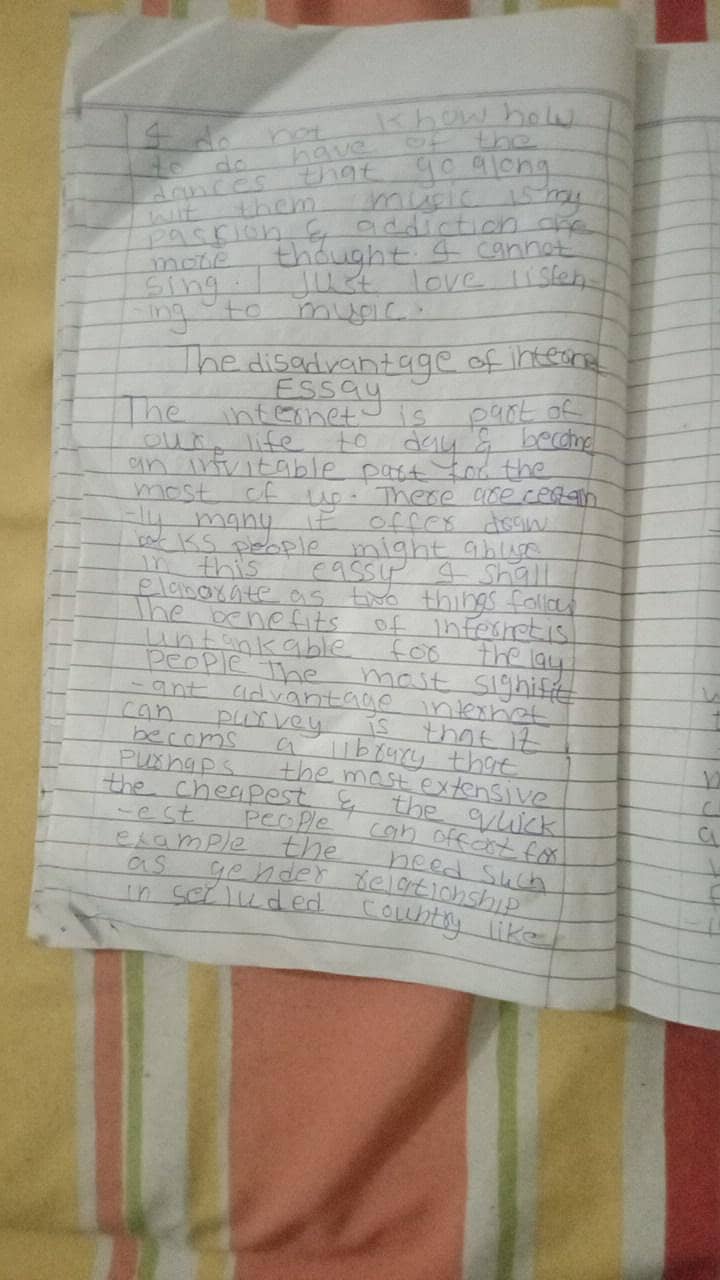 I do not know how
to do have of the
dances that go along
wit them music is my
passion & addiction are
more thought. I cannot
sing. I just love listen
-ing to music.
The disadvantage of internet
Essay
The internet is part of
our life to day & become
an invitable part for the
most of us. There are certain
-ly many it offer draw
backs people might abuse
in this eassy I shall
elaborate as two things follow
The benefits of internet is
untankable for the lay
people The most signifit
-ant advantage internet
can purvey is that it
becoms a library that
purhaps the most extensive
the cheapest & the quick
-est people can offort for
example the need such
as gender relationship
in secluded country like